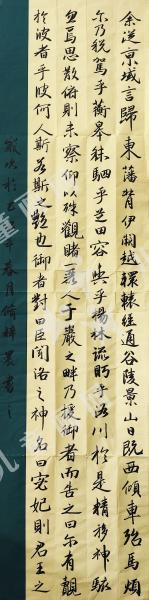 余從京域言歸東藩背伊闕越轘轅經通谷陵景山日既西傾車殆馬煩
尔乃稅駕乎蘅皋秣駟乎芝田容與乎楊林流眄乎洛川於是精移神駭
忽焉思散俯則未察仰以殊觀睹麗人于巖之畔乃援御者而告之曰尔有覿
於彼者乎彼何人斯若斯之艷也御者對曰臣聞洛之神名曰宓妃則君王之
歲次於年春月晨書之